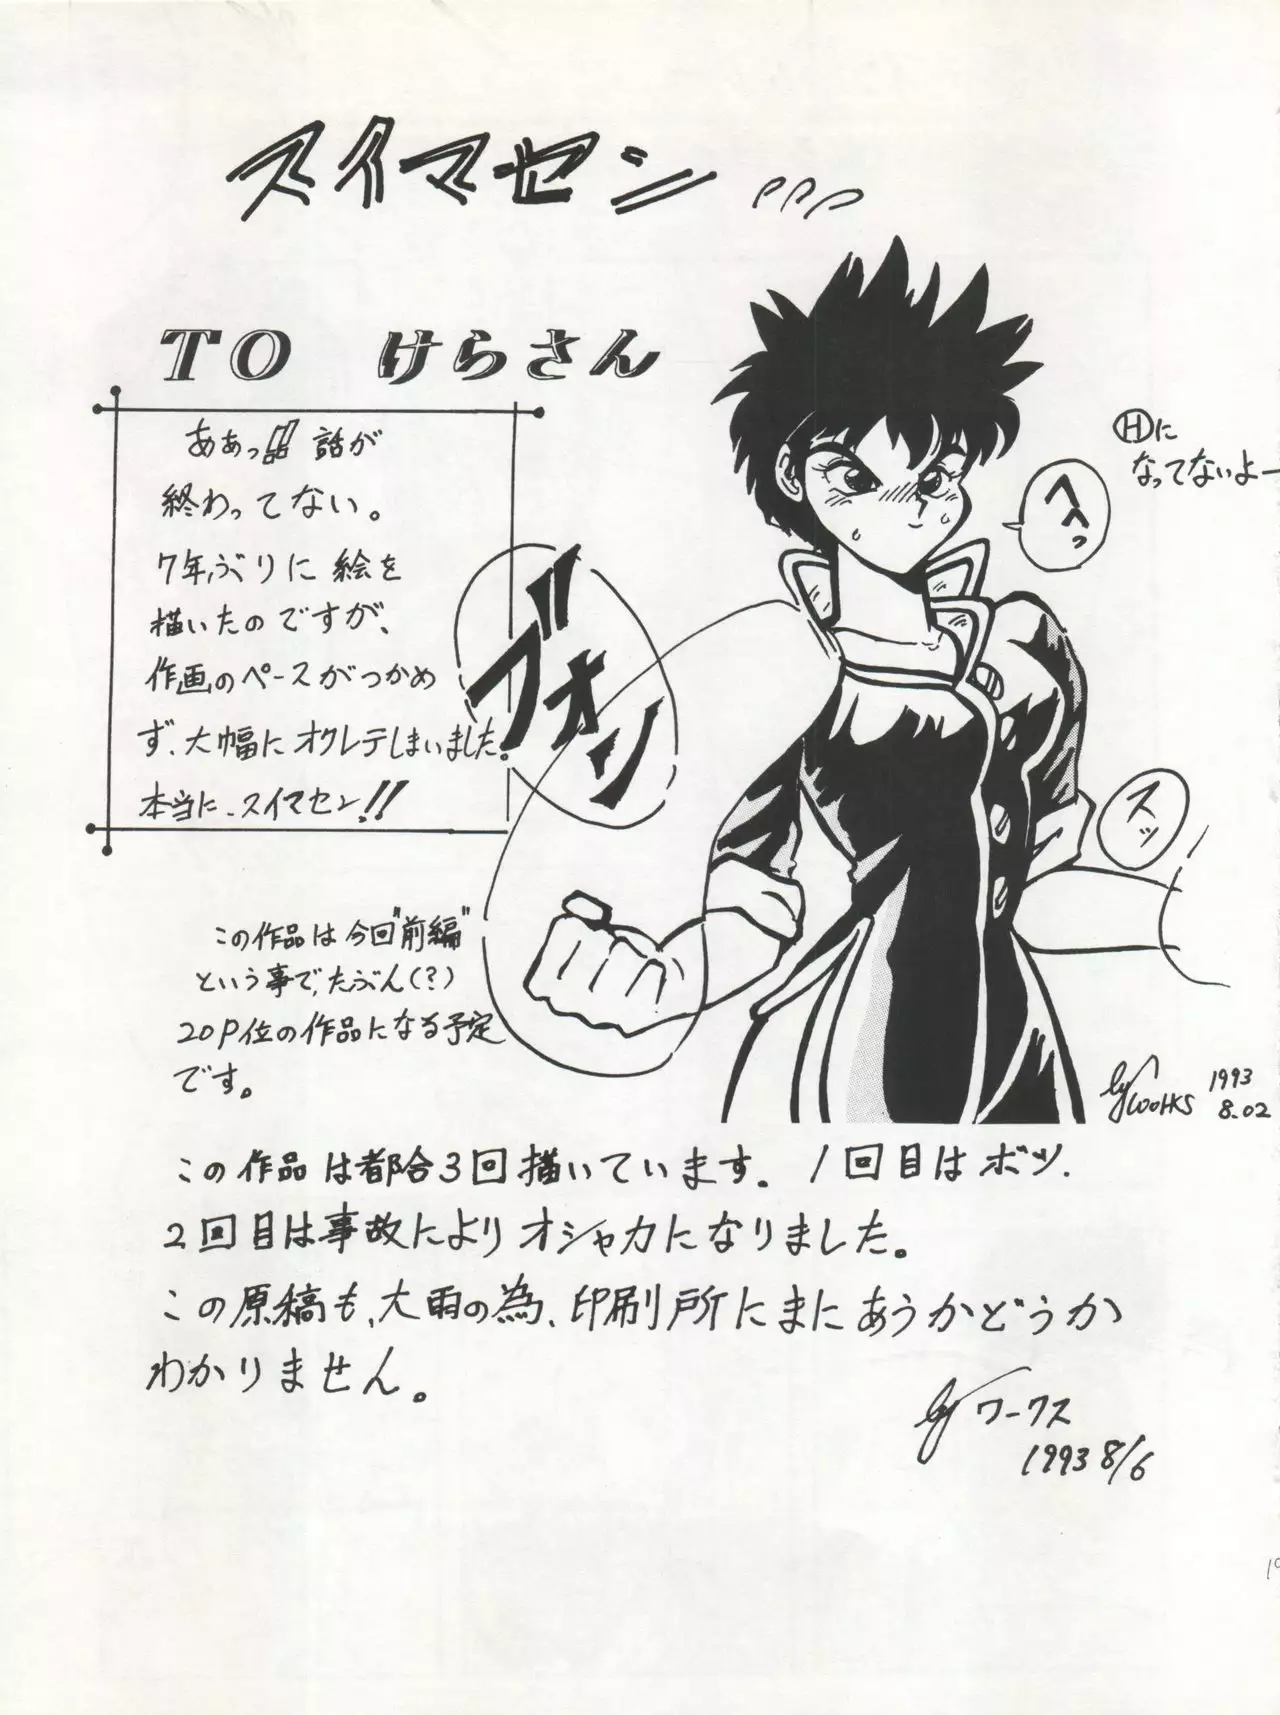 スイマセン
TO けらさん
あぁっ!! 話が
終わってない。
7年ぶりに 絵を
描いたのですが、
作画のペースがつかめ
ず、大幅にオクレテしまいました。
本当に、スイマセン!!
ブオン
Ⓗに
なってないよー
へへっ
スッ
この作品は今回"前編"
という事で、たぶん(?)
20P位の作品になる予定
です。
by WORKS 1993
8.02
この作品は都合3回描いています。1回目はボツ、
2回目は事故によりオシャカになりました。
この原稿も、大雨の為、印刷所にまにあうかどうか
わかりません。
by ワークス
1993 8/6